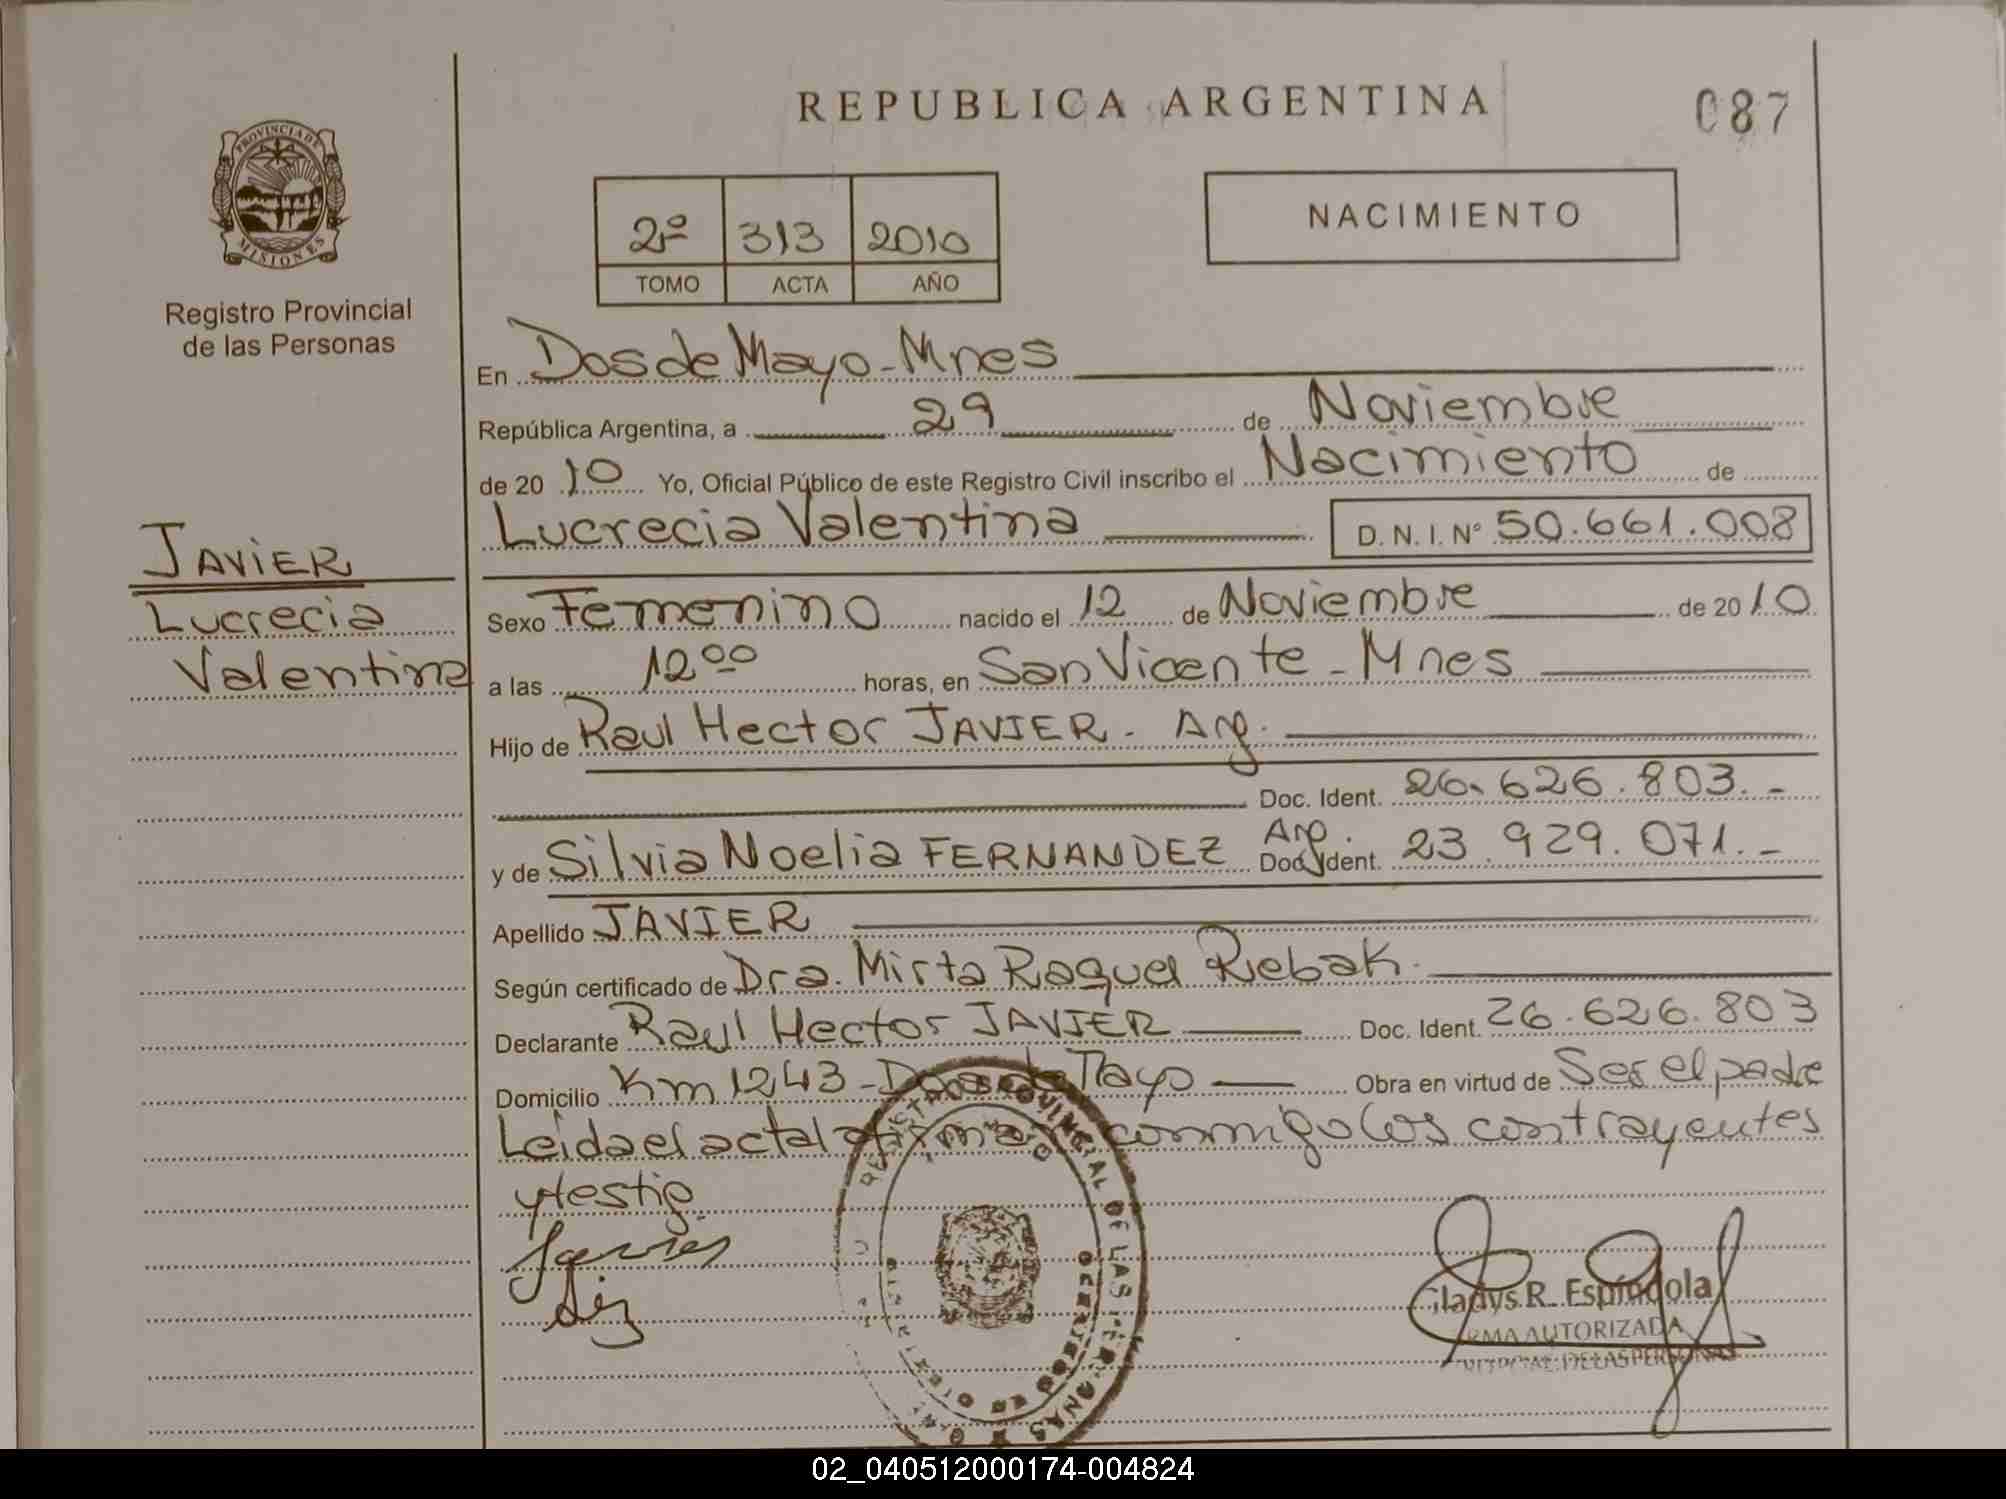 REPUBLICA ARGENTINA
087
PROVINCIA DE
MISIONES
Registro Provincial
de las Personas
2º 313 2010
TOMO ACTA AÑO
NACIMIENTO
En Dos de Mayo - Mnes
República Argentina, a 29 de Noviembre
de 2010 Yo, Oficial Público de este Registro Civil inscribo el Nacimiento de
Lucrecia Valentina D.N.I. Nº 50.661.008
JAVIER
Lucrecia
Valentina
Sexo Femenino nacido el 12 de Noviembre de 2010
a las 12 00 horas, en San Vicente - Mnes
Hijo de Raul Hector JAVIER - Arg.
Doc. Ident. 26.626.803.-
y de Silvia Noelia FERNANDEZ Arg. Doc. Ident. 23.929.071.-
Apellido JAVIER
Según certificado de Dra. Mirta Raquel Rebak.
Declarante Raul Hector JAVIER Doc. Ident. 26.626.803
Domicilio Km 1243 - Dos de Mayo Obra en virtud de Ser el padre
Leida el acta conmigo los contrayentes
y testig.
Javier
REGISTRO PROVINCIAL DE LAS PERSONAS
Gladys R. Espíndola
FIRMA AUTORIZADA
DE LAS PERSONAS
02_040512000174-004824